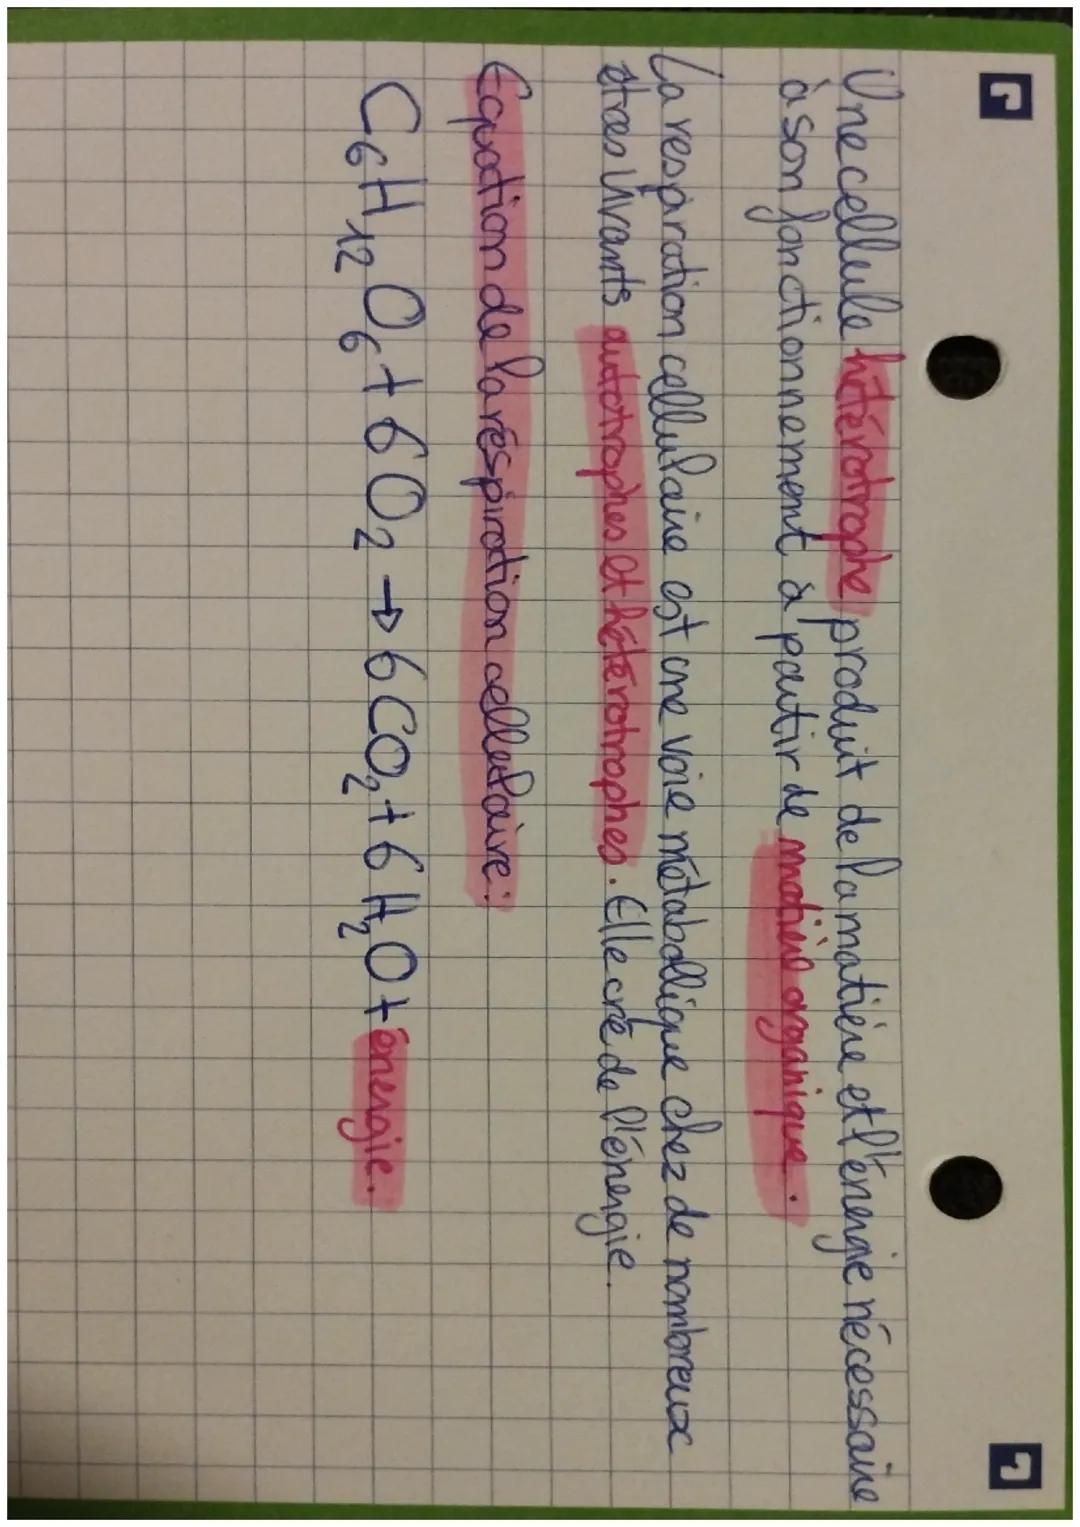 Une cellule hétérotrophe produit de la matière et l'énergie nécessaire
à son fonctionnement à partir de matière organique.
La respiration cellulaire est une voie métabollique chez de nombreux
êtres vivants autotrophes et hétérotrophes. Elle cré de l'énergie.
Equation de la réspiration cellulaire :
C₆H₁₂O₆ + 6O₂ → 6CO₂ + 6H₂O + énergie.